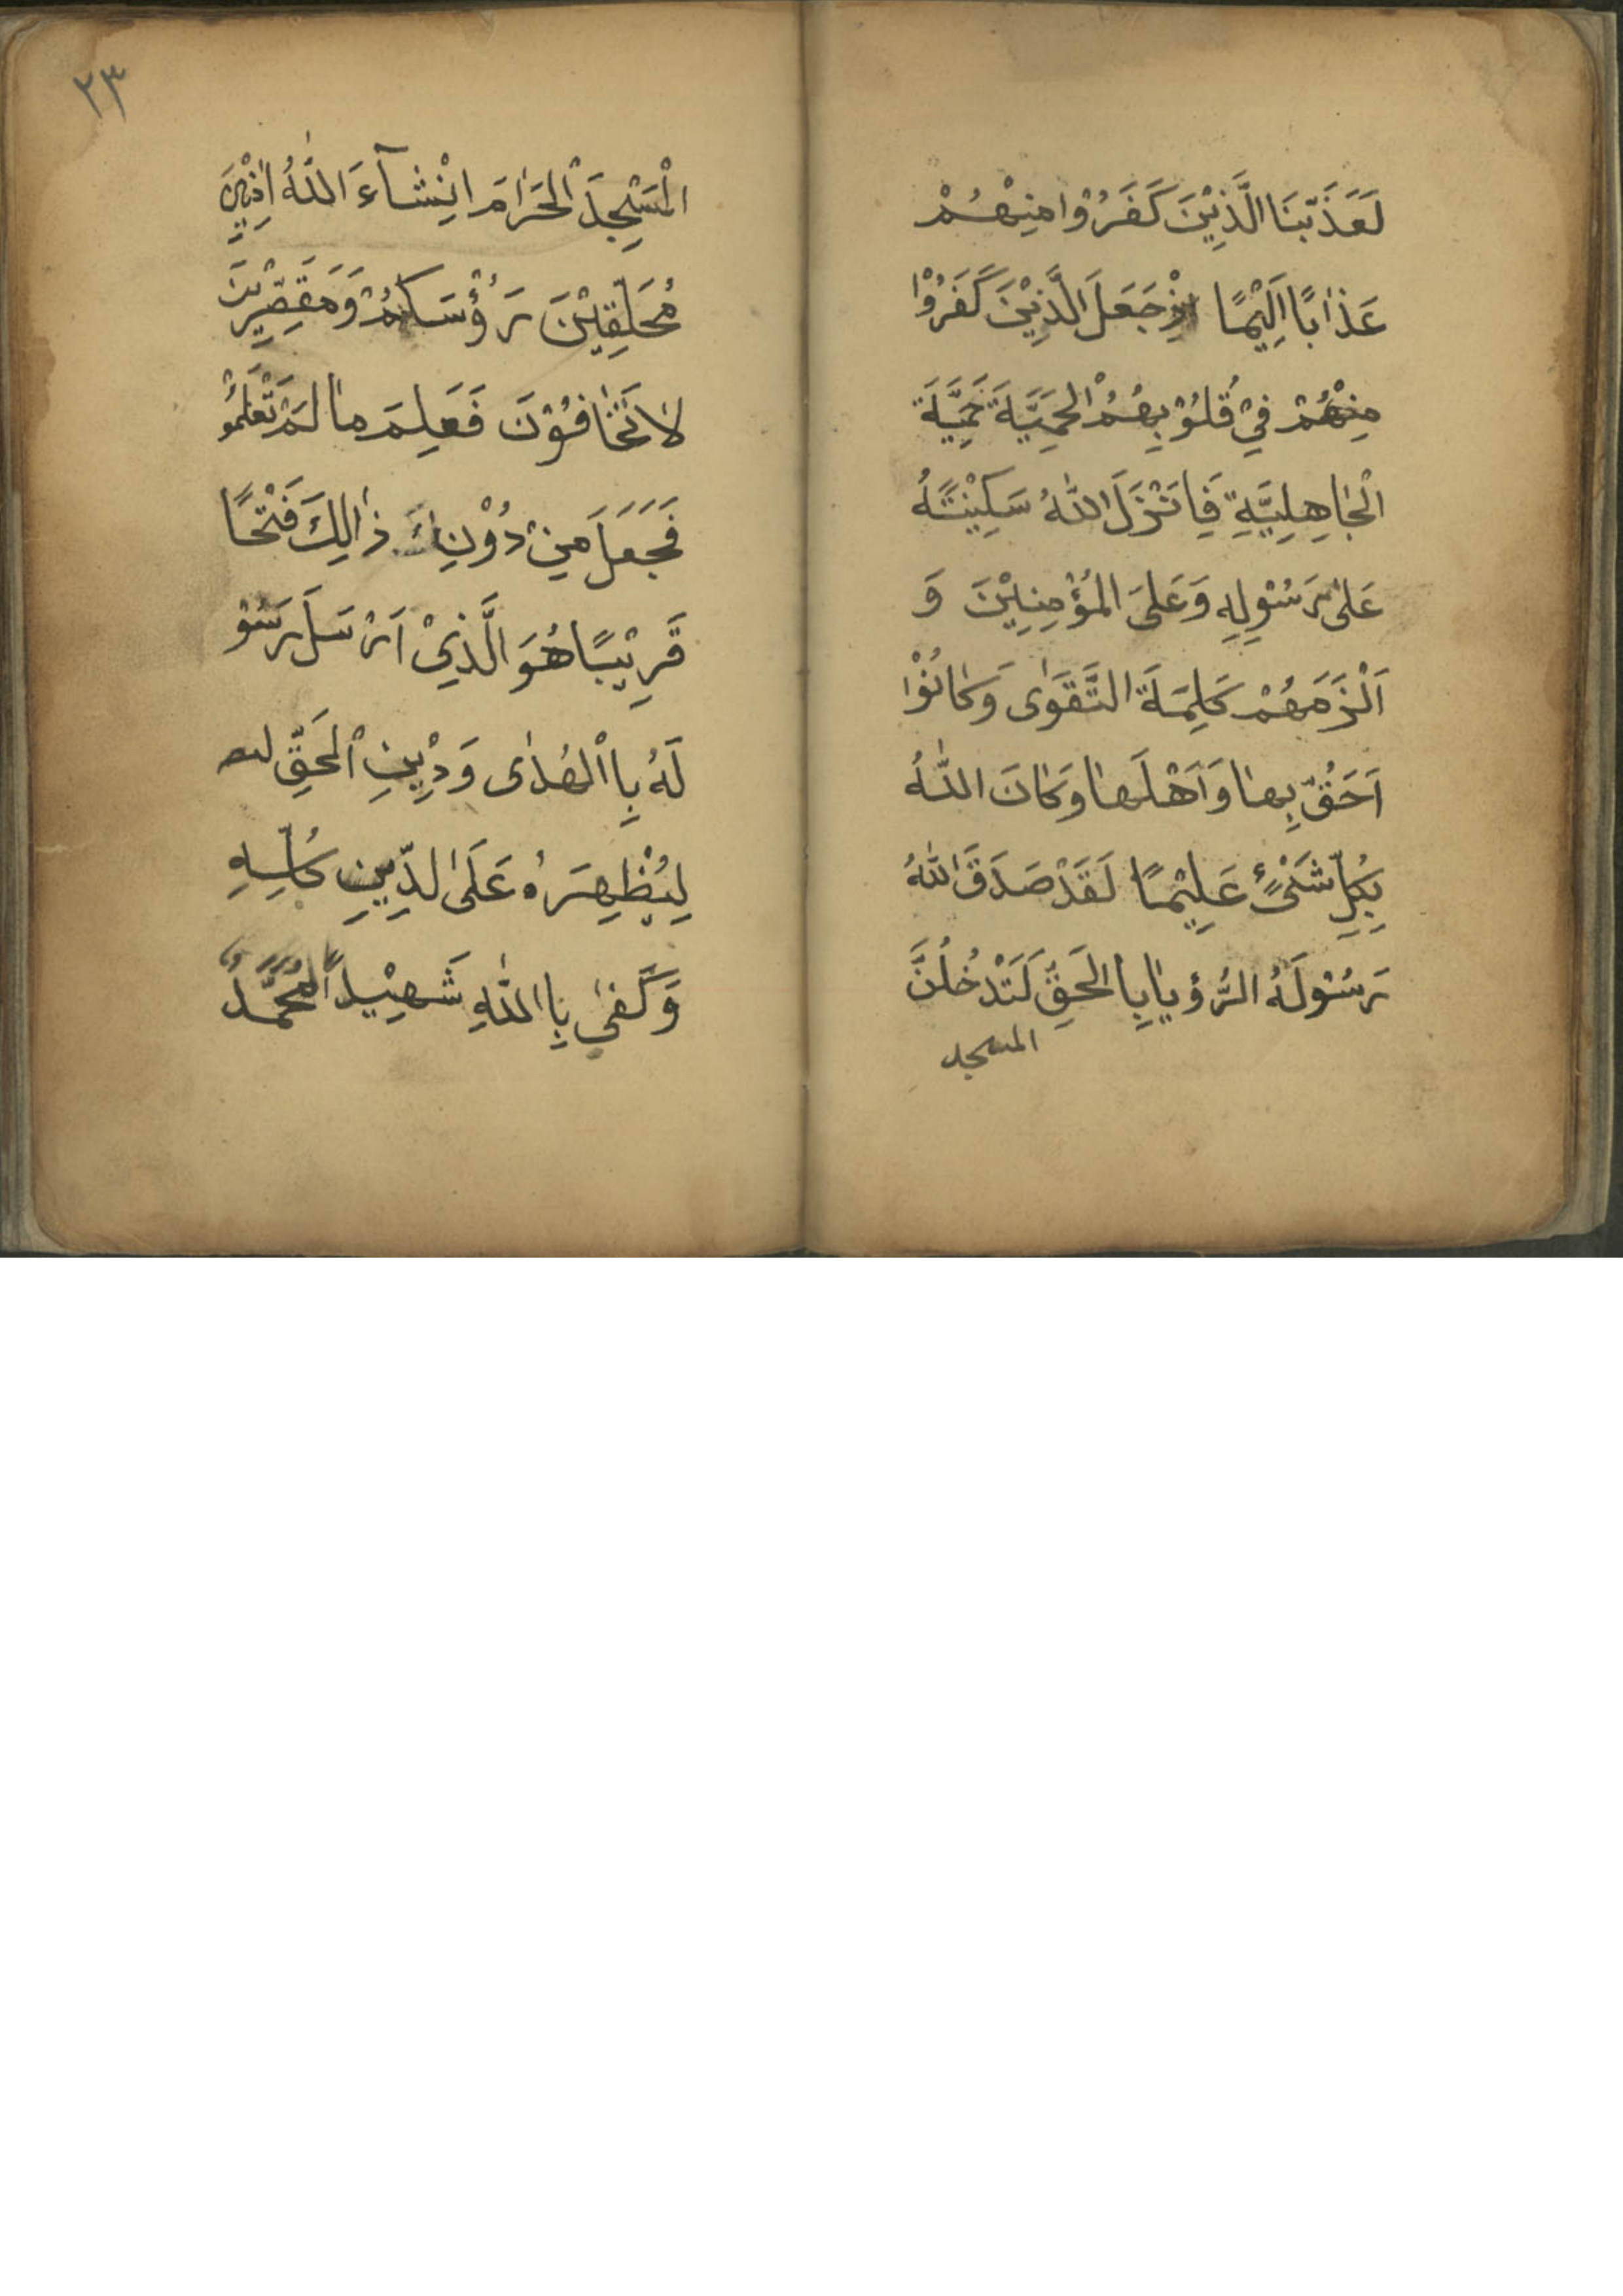 لَعَذَّبْنَا الَّذِيْنَ كَفَرُوْا مِنْهُمْ
عَذَابًا اَلِيْمًا اِذْ جَعَلَ الَّذِيْنَ كَفَرُوْا
مِنْهُمْ فِيْ قُلُوْبِهُمْ الْحَمِيَّةَ حَمِيَّةَ
الْجَاهِلِيَّةِ فَاَنْزَلَ اللّٰهُ سَكِيْنَتَهُ
عَلٰى رَسُوْلِهِ وَعَلَى الْمُؤْمِنِيْنَ وَ
اَلْزَمَهُمْ كَلِمَةَ التَّقَوٰى وَكَانُوْا
اَحَقُّ بِهَا وَاَهْلَهَا وَكَانَ اللّٰهُ
بِكُلِّ شَىْءٍ عَلِيْمًا لَقَدْ صَدَقَ اللّٰهُ
رَسُوْلَهُ الرُّؤيَا بِاالْحَقِّ لَتَدْخُلُنَّ
المسجد
٢٣
الْمَسْجِدَ الْحَرَامَ اِنْشَآءَ اللّٰهُ اٰمِنِيْنَ
مُحَلِّقِيْنَ رَؤُسَكُمْ وَمَقَصِّرِيْنَ
لَا تَخَافُوْنَ فَعَلِمَ مَا لَمْ تَعْلَمُوْ
فَجَعَلَ مِنْ دُوْنِ ذَالِكَ فَتْحًا
قَرِيْبًا هُوَ الَّذِيْ اَرْسَلَ رَسُوْ
لَهُ بِاالْهُدٰى وَدِيْنِ الْحَقِّ لىه
لِيُظْهِرَهُ عَلَى الدِّيْنِ كُلِّهِ
وَكَفٰى بِااللّٰهِ شَهِيْدًا مُحَمَّدٌ